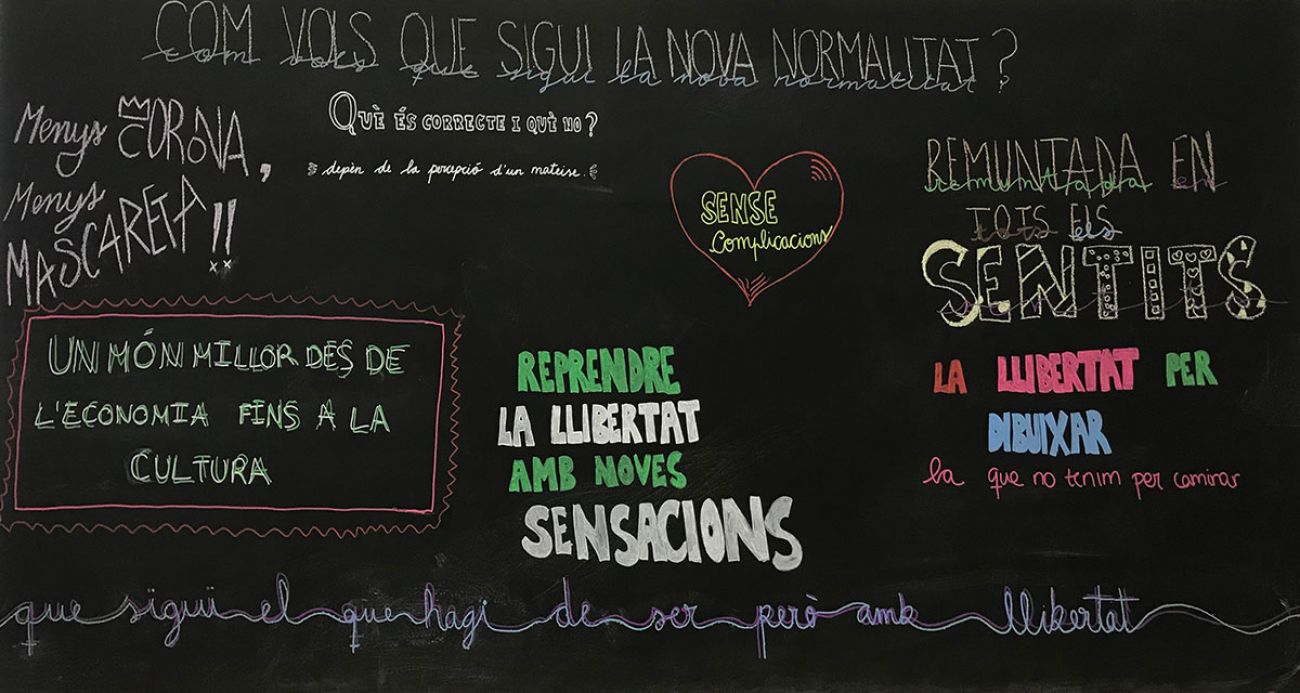 COM VOLS QUE SIGUI LA NOVA NORMALITAT?
com vols que sigui la nova normalitat?
Menys CORONA,
Menys
MASCARETA!!
QUÈ ÉS CORRECTE I QUÈ NO?
depèn de la percepció d'un mateixe.
SENSE
Complicacions
REMUNTADA EN
remuntada en
TOTS ELS
SENTITS
UN MÓN MILLOR DES DE
L'ECONOMIA FINS A LA
CULTURA
REPRENDRE
LA LLIBERTAT
AMB NOVES
SENSACIONS
LA LLIBERTAT PER
DIBUIXAR
la que no tenim per caminar
que sigui el que hagi de ser però amb llibertat